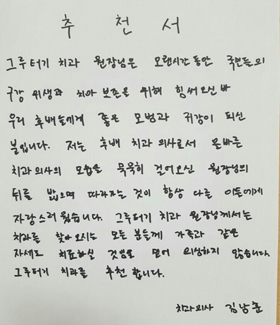 추 천 서
그루터기 치과 원장님은 오랜시간동안 국민들의
구강 위생과 치아 보존을 위해 힘써오신바
우리 후배들에게 좋은 모범과 귀감이 되신
분입니다. 저는 후배 치과의사로서 올바른
치과의사의 모습을 묵묵히 걸어오신 원장님의
뒤를 밟으며 따라가는 것이 항상 다른 이들에게
자랑스러웠습니다. 그루터기 치과 원장님께서는
치과를 찾아오시는 모든 분들께 가족과 같은
자세로 치료하실 것임을 믿어 의심치 않습니다.
그루터기 치과를 추천합니다.
치과의사 김남훈